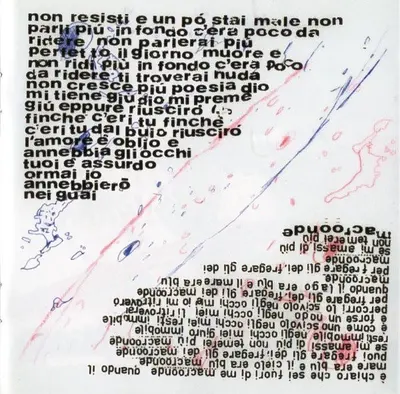 non resisti e un pó stai male non
parli più in fondo c'era poco da
ridere non parlerai più
perfetto il giorno muore e
non ridi più in fondo c'era poco
da ridere ti troverai nuda
non cresce più poesia dio
mi tiene giù dio mi preme
giú eppure riusciró
finche c'eri tu finche
c'eri tu dal buio riusciró
l'amore è oblio e
annebbia gli occhi
tuoi e assurdo
ormai io
annebbierò
nei guai
è chiaro che sei fuori di me macroonde quando il
mare era blu e il cielo era blu macroonde
puoi fregare gli dei, fregare gli dei macroonde
se mi amassi di più non temerei più macroonde
resti immobile negli occhi miei giuro immobile
è come uno scivolo negli occhi miei, resti immobile
e forse negli occhi miei ti ritroverò
percorro lo scivolo negli occhi io mi ritroverò
per fregare gli dei, fregare gli dei macroonde
quando il era blu il mare era blu
macroonde
per fregare gli dei, fregare gli dei
macroonde
se mi amassi di più
non temerei più
macroonde